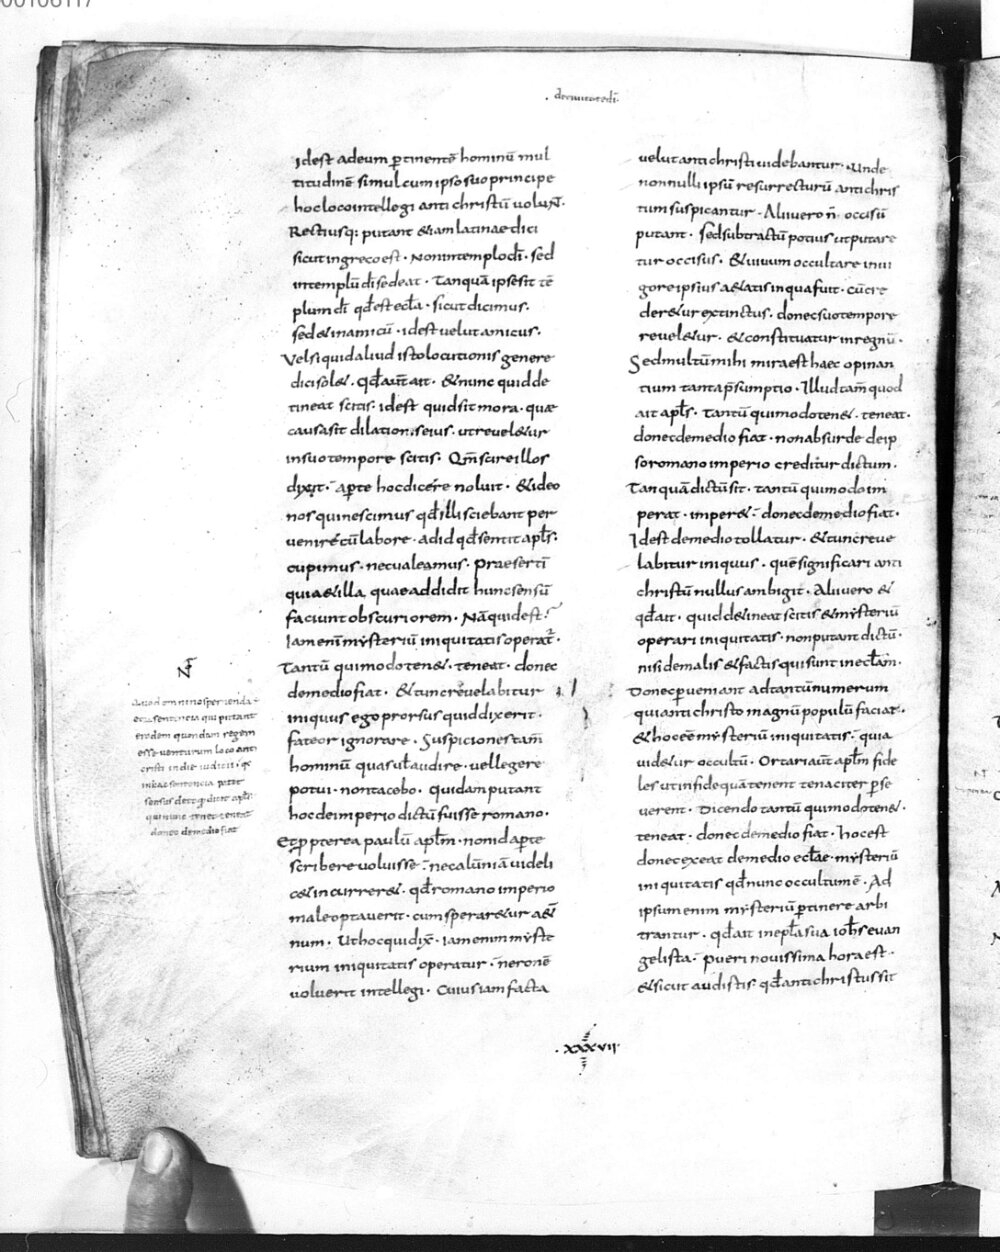 00106117
de ciuitate di
Idest adeum ꝑtinentē hominū mul
titudinē simul cum ipso suo principe
hoc loco intellegi antichristū uolunt.
Rectiusq: putant &iam latinae dici
sicut in greco est. Non in templo dī. sed
in templū dī sedeat. Tanquā ipse sit tē
plum dī qđ est eccla. sicut dicimus.
sed& in amicū. idest uelut amicus.
Vel siquid aliud isto locutionis genere
dici sol&. Qđ aut ait. &nunc quid de
tineat scitis. idest quid sit mora. quae
causa sit dilationis eius. utreuel&ur
in suo tempore scitis. Qm̄ scire illos
dixit. aꝑte hoc dicere noluit. &ideo
nos qui nescimus qđ illi sciebant per
uenire cū labore. ad id qđ sentit apls.
cupimus. nec ualeamus. praesertī
quia &illa quae addidit hunc sensū
faciunt obscuriorem. Nā quid est?
Iam enī mysteriū iniquitatis operat.
Tantū qui modo ten&. teneat. donec
de medio fiat. &tunc reuelabitur
iniquus ego prorsus quid dixerit.
fateor ignorare. Suspiciones tam̄
hominū quas uł audire. uel legere
potui. non tacebo. Quidam putant
hoc de imperio dictū fuisse romano.
Et ꝓpterea paulū aplm. non id aꝑte
scribere uoluisse. ne calūniā uideli
c& incurrer&. qđ romano imperio
male optauerit. cum sperar&ur a&
num. Ut hoc qui dix. iam enim myste
rium iniquitatis operatur. neronē
uoluerit intellegi. Cuius iam facta
Quod omnino sper nenda
sententia qui putant
eundem quondam regem
esse uenturum loco anti
cristi in die iudicii. qs
in hac sententia potest
apls
qui nunc tenet teneat
donec de medio fiat
uelut antichristi uidebantur. Unde
nonnulli ipsū resurrecturū antichris
tum suspicantur. Alii uero n. occisū
putant. sed subtractū potius ut putare
tur occisus. &uiuum occultare in ui
gore ipsius a&atis in qua fuit. cū cre
der&ur extinctus. donec suo tempore
reuel&ur. &constituatur in regnū.
Sed multū mihi mira est haec opinan
tium tanta p̄sumptio. Illud tam̄ quod
ait apls. tantū qui modo ten&. teneat.
donec de medio fiat. non absurde de ip
so romano imperio creditur dictum.
Tanquā dictū sit. tantū qui modo im
perat. imper&. donec de medio fiat.
Idest de medio tollatur. &tunc reue
labitur iniquus. quē significari anti
christū nullus ambigit. Alii uero &
qđ ait. quid d&ineat scitis &mysteriū
operari iniquitatis. non putant dictū.
nisi de malis &factis qui sunt in eccla.
Donec ꝑueniant ad tantū numerum
qui antichristo magnū populū faciat.
&hoc eē mysteriū iniquitatis. quia
uid&ur occultū. Ortari aut aplm fide
les ut in fide quā tenent tenaciter ꝑse
uerent. Dicendo tantū qui modo ten&.
teneat. donec de medio fiat. hoc est
donec exeat de medio ecclae. mysteriū
iniquitatis qđ nunc occultum ē. Ad
ipsum enim mysteriū ꝑtinere arbi
trantur. qđ ait in epla sua iohs euan
gelista. pueri nouissima hora est.
&sicut audistis. qđ antichristus sit
.xxxvii.